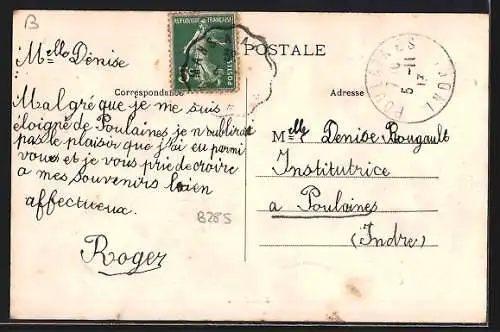 B
RÉPUBLIQUE FRANÇAISE
5c
POSTES
POSTALE
Mlle Denise
Correspondance
Malgré que je me suis
éloigné de Poulaines je n'oublirai
pas le plaisir que j'ai eu parmi
vous et je vous prie de croire
a mes souvenirs bien
affectueux.
B285
Roger
POULAINES
5 -11
13
Adresse
Melle Denise Rougault
Institutrice
a Poulaines
(Indre)